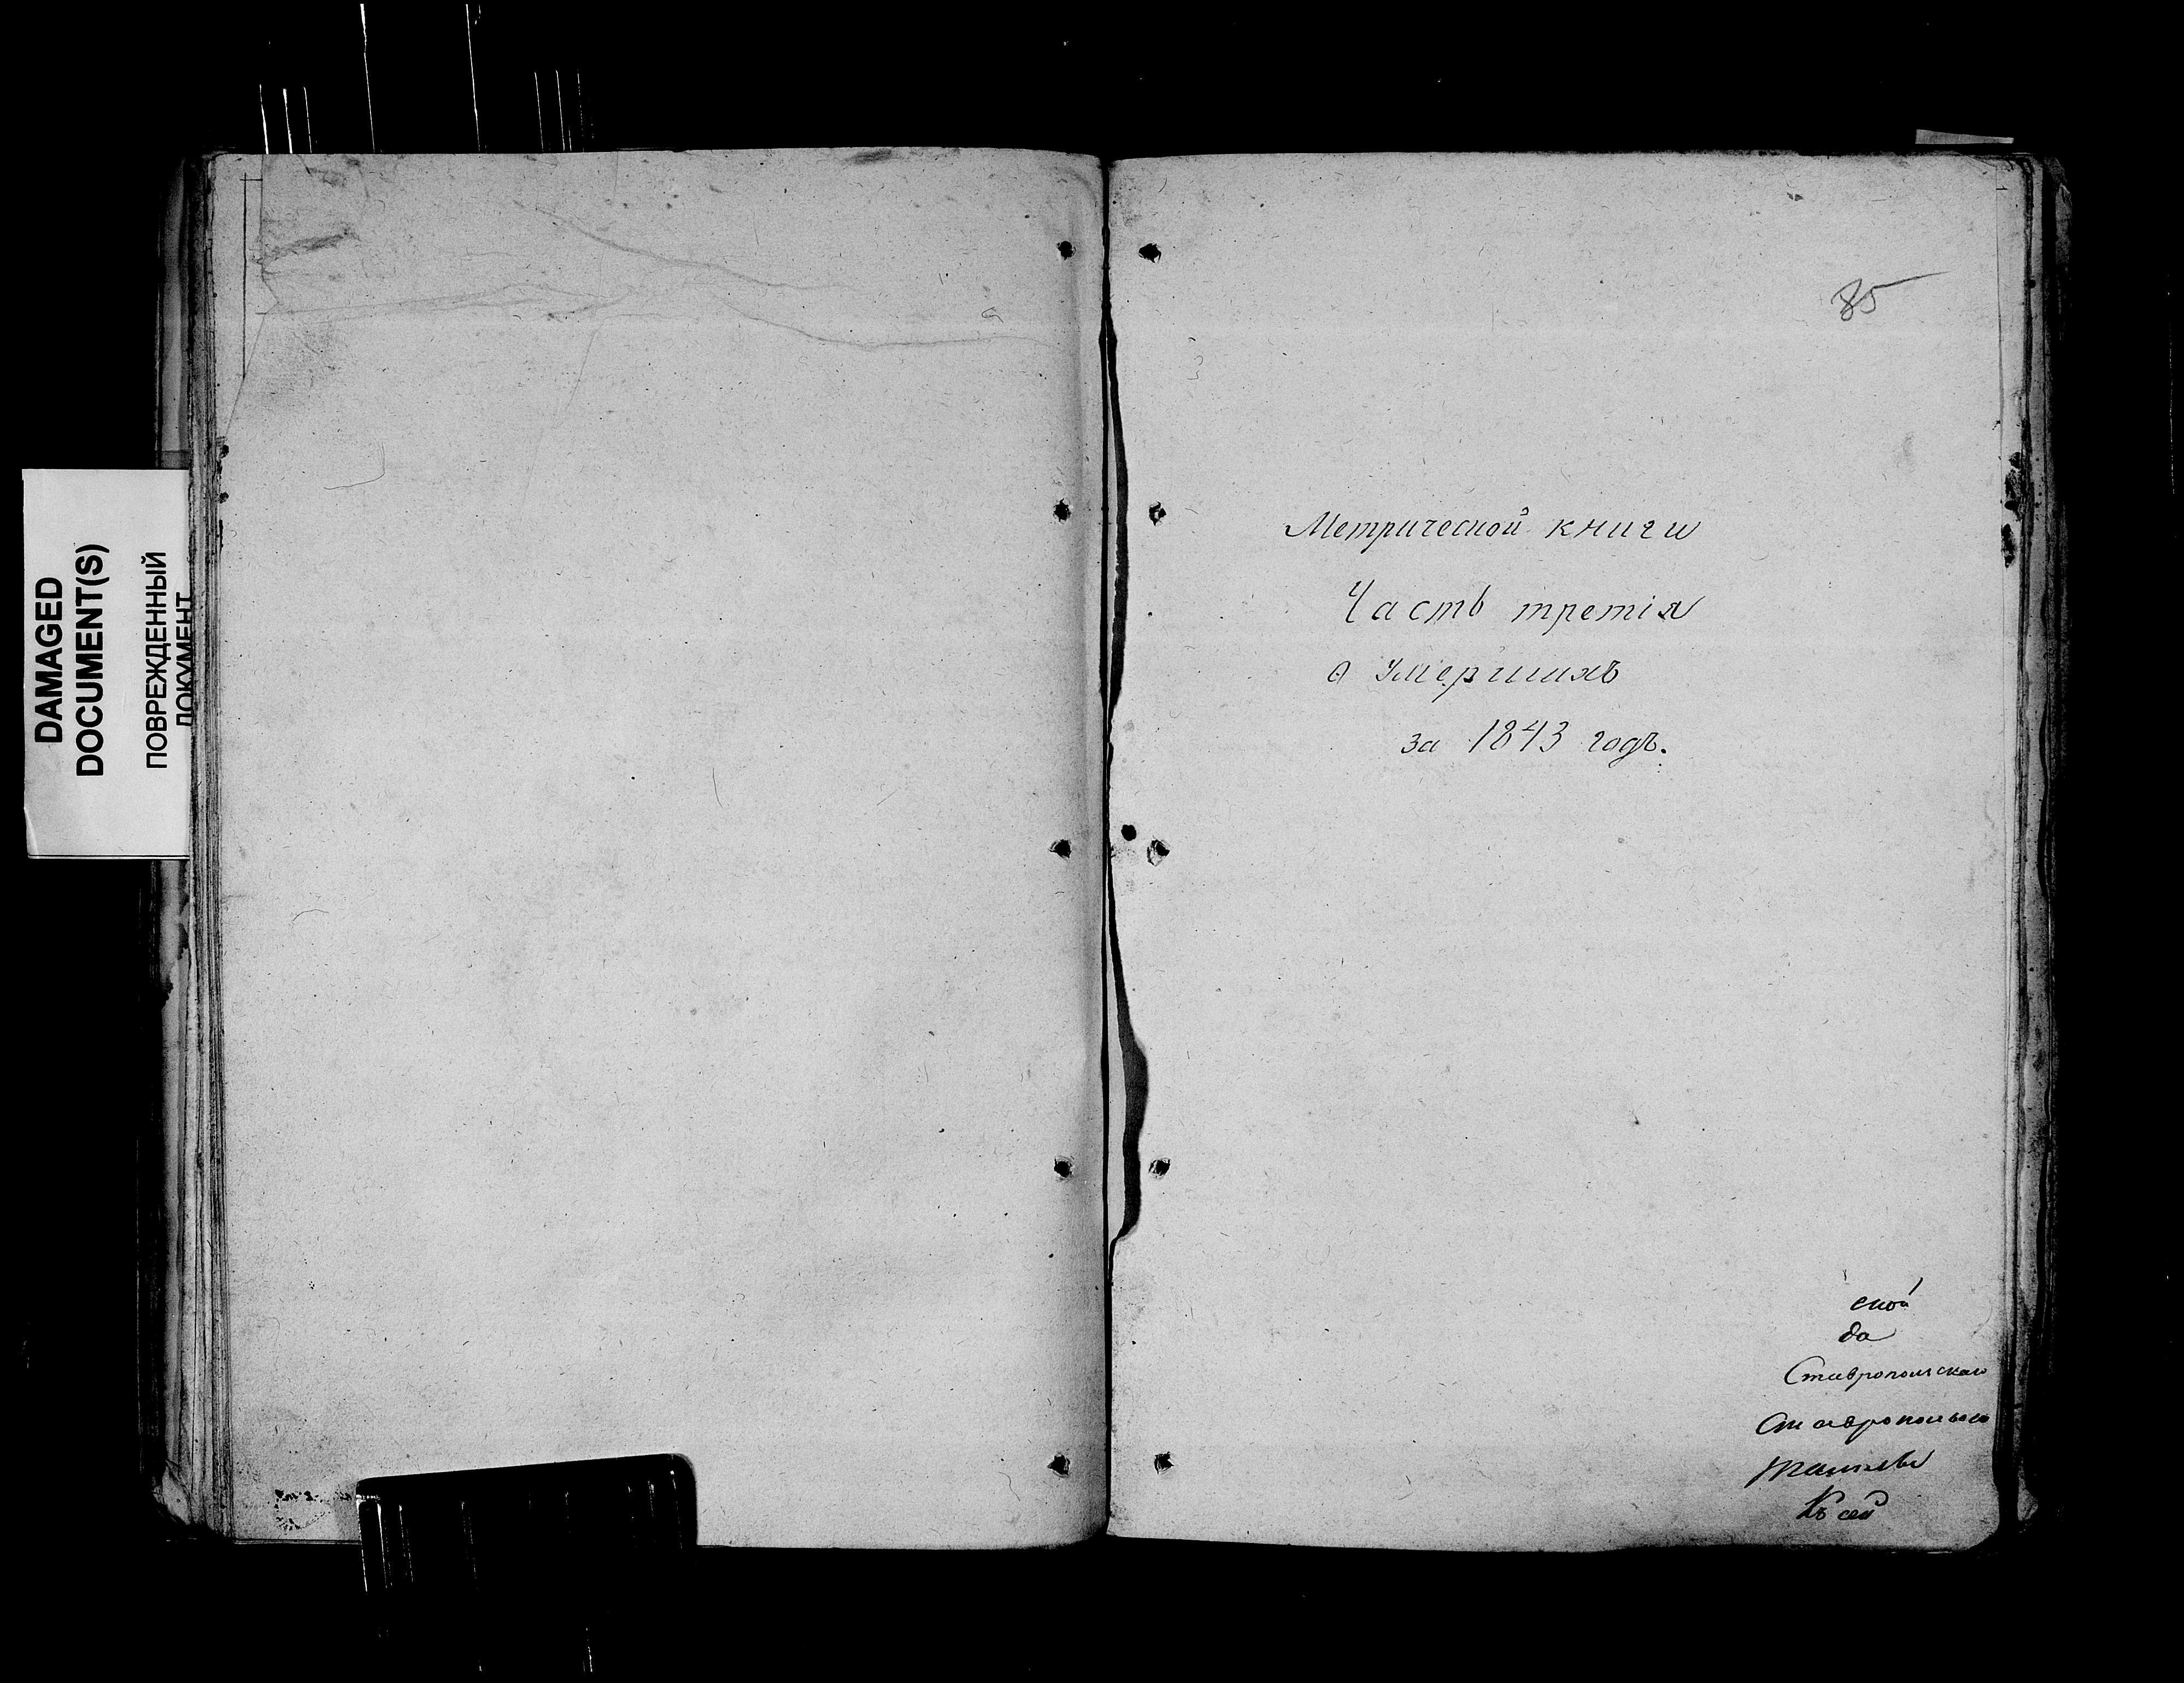 DAMAGED
DOCUMENT(S)
ПОВРЕЖДЕННЫЙ
ДОКУМЕНТ
85
Метрической книги
Часть третія
о умершихъ
за 1843 годъ.
ской
да
Ставропольскаго
Къ сей